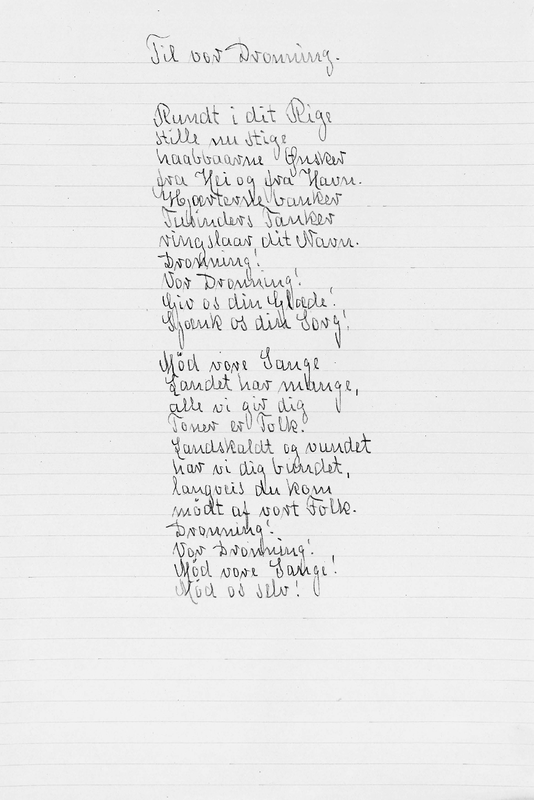 Til vor Dronning.
Rundt i dit Rige
stille nu stige
haabbaarne Ønsker
fra Hei og fra Havn.
Hjærterne banker
Tusinders Tanker
ringslaar dit Navn.
Dronning!
Vor Dronning!
Giv os din Glæde!
Skjænk os din Sorg!
Mød vore Sange
Landet har mange,
alle vi gir dig
Toner er Folk.
Landskaldt og vundet
har vi dig bundet,
langveis du kom
mødt af vort Folk.
Dronning!
Vor Dronning!
Mød vore Sange!
Mød os selv!